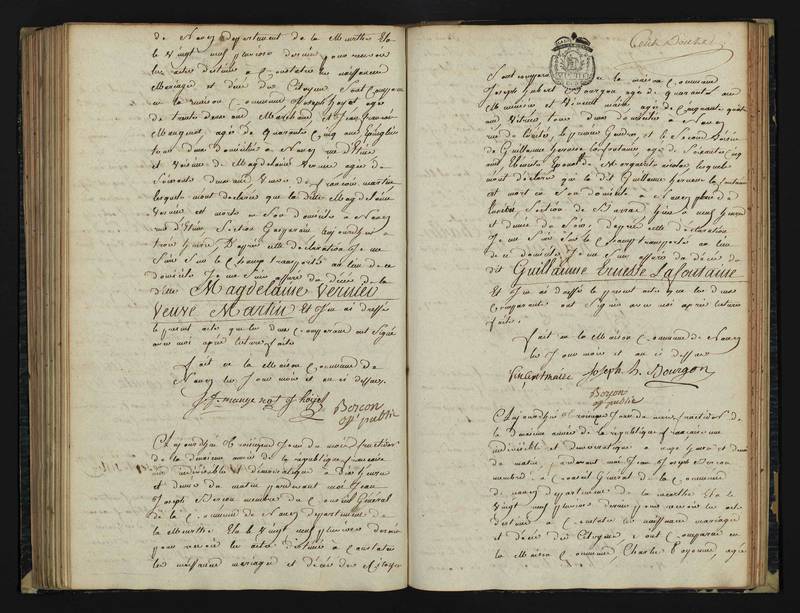 de Nancy département de la Meurthe Elu
le vingt neuf pluviose dernier pour recevoir
les actes destinés à Constater les naissances
Mariages et décès des Citoyens Sont Comparu
en la maison Commune Joseph hoyet agé
de trente deux ans Marchand et Jean françois
Mangenot, agé de quarante Cinq ans Epinglier
tous deux domiciliés à Nancy rue
et voisins de Magdelaine Vernier agée de
Soixante deux ans veuve de françois martin
lesquels m'ont declaré que la ditte Magdelaine
Vernier est morte en Son domicile à Nancy
Section aujourd'huy à
trois heures, D'après cette déclaration Je me
Suis Sur le Champ transporté au lieu de ce
domicile Je me Suis assuré du décès de la
ditte Magdelaine Vernier
Veuve Martin Et J'en ai dressé
le present acte que les deux Comparans ont Signé
avec moi après lecture faite
fait en la Maison Commune de
Nancy les Jour mois et an ci dessus.
jf mangenot J hoyet
Borcon
off public
Aujourd'hui Jour du mois fructidor
de la deuxieme année de la république francaise
une indivisible et démocratique à dix heures
et demie du matin pardevant moi Jean
Joseph Borcon membre du Conseil Général
de la Commune de Nancy département de
la Meurthe Elu le vingt neuf pluviose dernier
pour recevoir les actes destinés à Constater
les naissances mariages et décès des Citoyens
Sont comparus en la maison Commune
Joseph hubert Bourgon agé de quarante ans
et Vincent maire agé de Cinquante quatre
ans Vitrier, tous deux domiciliés à Nancy
le premier Gendre et le Second Voisin
de Guillaume Lafontaine agé de Soixante Cinq
ans Epoux de Marguerite nicolas, lesquels
m'ont declaré que le dit Guillaume la fontaine
est mort en Son domicile à Nancy
Section de hier à neuf heures
et demie du Soir, D'après cette déclaration
Je me Suis Sur le Champ transporté au lieu
de ce domicile Je me Suis assuré du décès de
dit Guillaume Ernesse Lafontaine
Et J'en ai dressé le present acte que les deux
Comparans ont Signé avec moi après lecture
faite.
fait en la Maison Commune de Nancy
les Jour mois et an ci dessus
Vincent maire Joseph h. Bourgon
Borcon
off public
Aujourd'hui Jour du mois fructidor de
la deuxieme année de la république francaise une
indivisible et démocratique à onze heures et demie
du matin, pardevant moi Jean Joseph Borcon
membre du Conseil Général de la Commune
de nancy département de la meurthe Elu le
vingt neuf pluviose dernier pour recevoir les actes
destinés à Constater les naissances mariages
et décès des Citoyens, Sont Comparus en
la Maison Commune, Charles agé